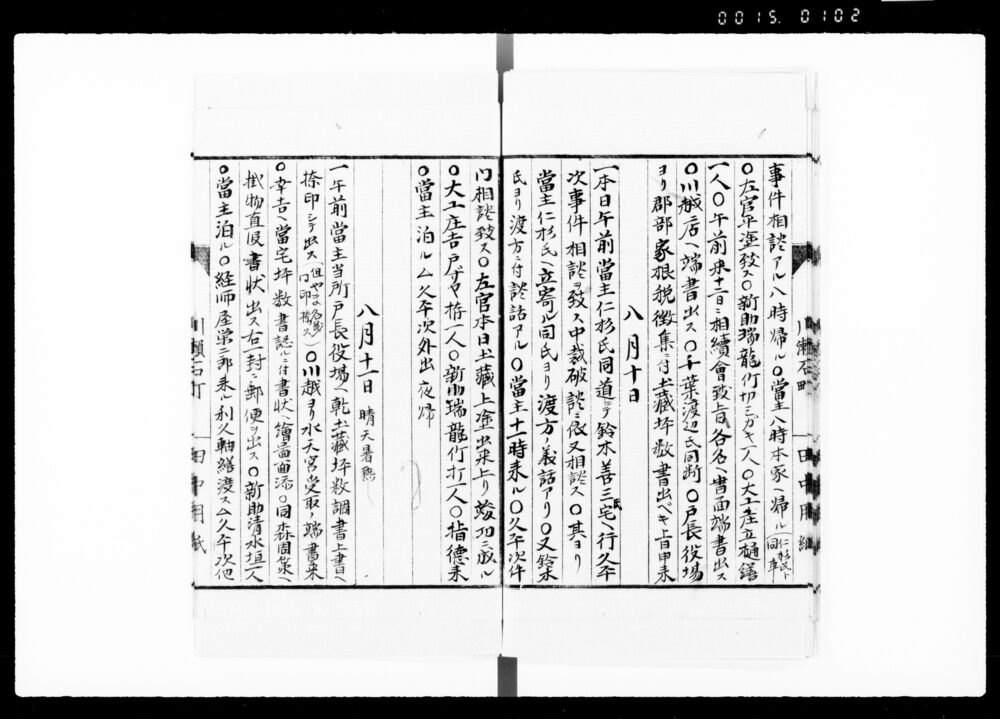 0015. 0102
事件相談アル八時帰ル〇當主八時本家ヘ帰ル(仁杉氏ト同車)
〇左官平塗致ス〇新助瑞龍竹切ミガキ一人〇大工庄立樋繕
一人〇午前来十二日ニ相續會致旨各各ヘ書面端書出ス
〇川越店ヘ端書出ス〇千葉渡辺氏同断〇戸長役場
ヨリ郡部家根税徴集ニ付土藏坪数書出ベキ旨申来
八月十日
一本日午前當主仁杉氏同道ニテ鈴木善三氏宅ヘ行久平
次事件相談ヲ致ス中裁破談ニ依又相談ス〇其ヨリ
當主仁杉氏ヘ立寄ル同氏ヨリ渡方ノ義話アリ〇又鈴木
氏ヨリ渡方ニ付談話アル〇當主十一時来ル〇久平次件
ハ相談致ス〇左官本日土藏上塗出来上リ竣功ニ成ル
〇大工庄吉戸ガヤ拵一人〇新助瑞龍竹打一人〇指德来
〇當主泊ル△久平次外出夜帰
八月十一日 晴天暑熱
一午前當主当所戸長役場ヘ乾土藏坪数調書上書ヘ
捺印シテ出ス〇川越ヨリ水天宮受取ノ端書来
〇幸吉ヘ當宅坪数書認ルニ付書状ヘ繪面添〇同森岡築ヘ
掛物直段書状出ス右一封ニ郵便ヲ出ス〇新助清水垣一人
〇當主泊ル〇経師屋栄二郎来ル利久軸繕渡ス△久平次他
川瀬石町
田中用紙
川瀬石町
田中用紙